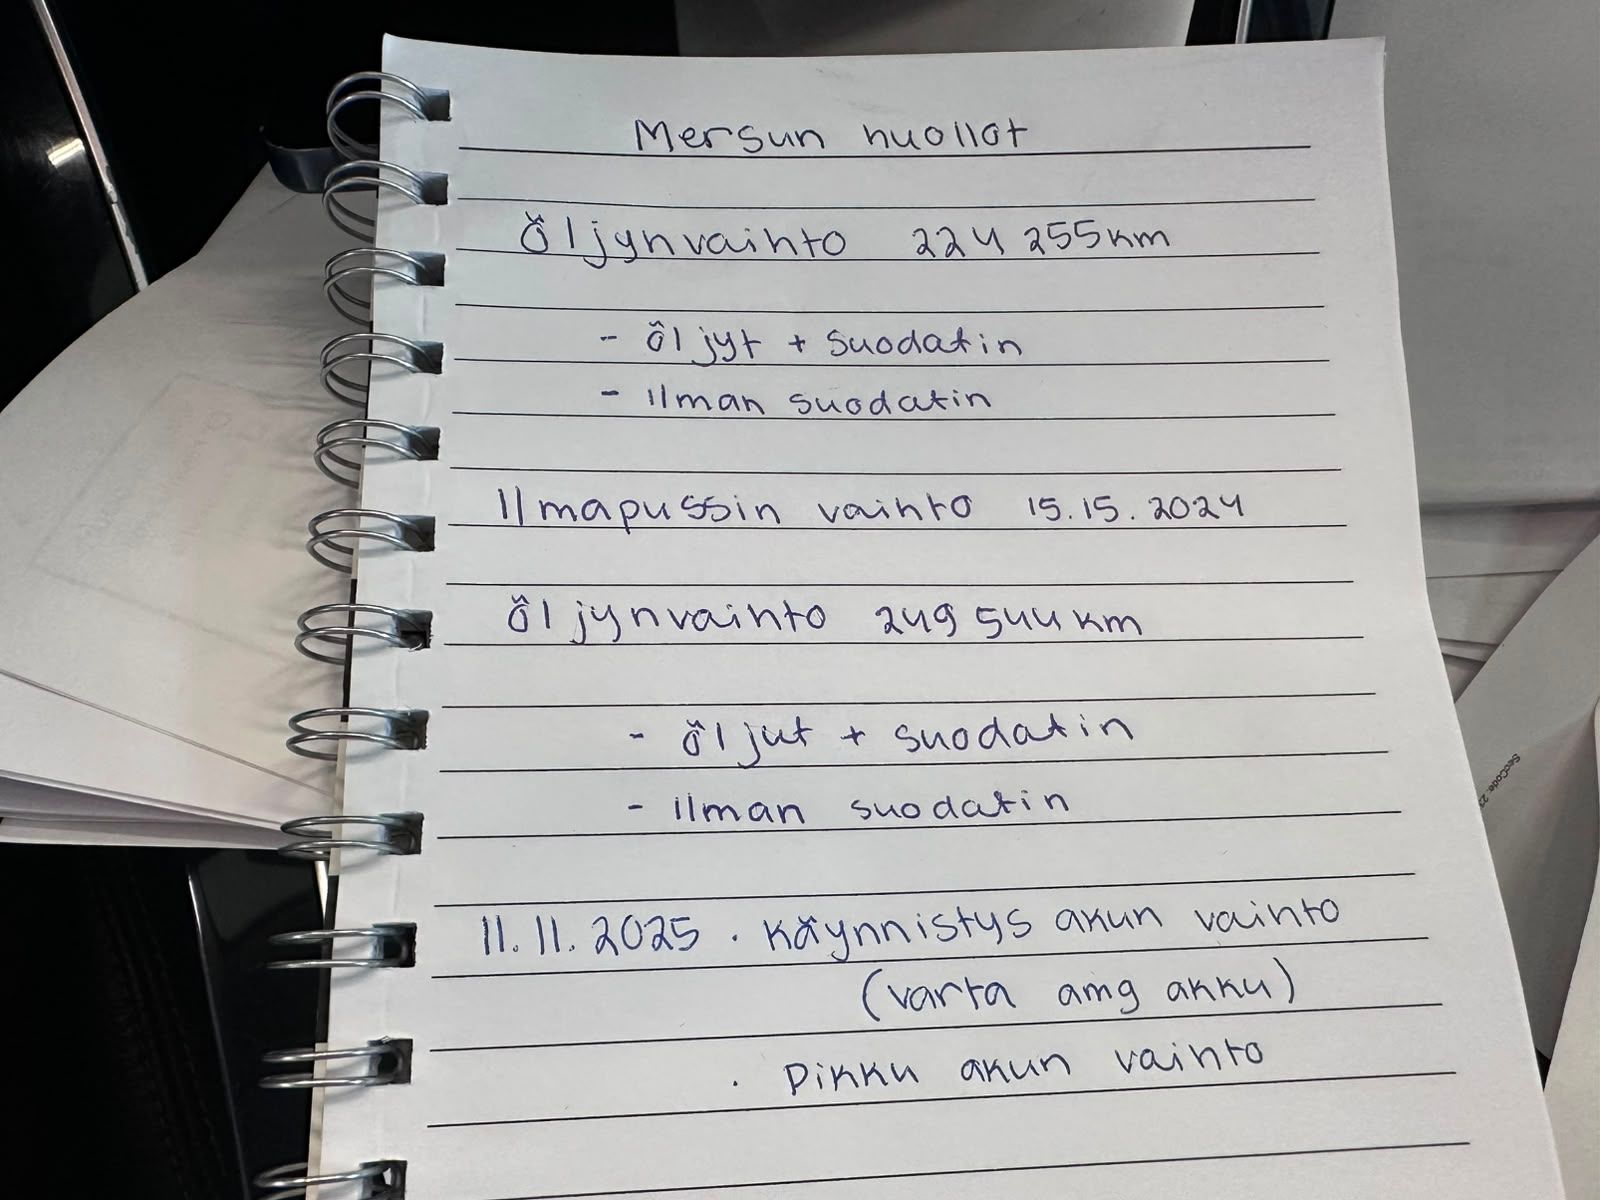 Mersun huollot
Öljynvaihto 224 255km
- öljyt + suodatin
- Ilman suodatin
Ilmapussin vaihto 15.15.2024
Öljynvaihto 249 544km
- öljut + suodatin
- Ilman suodatin
11.11.2025 · Käynnistys akun vaihto
(varta amg akku)
· Pikku akun vaihto
SecCode: 2